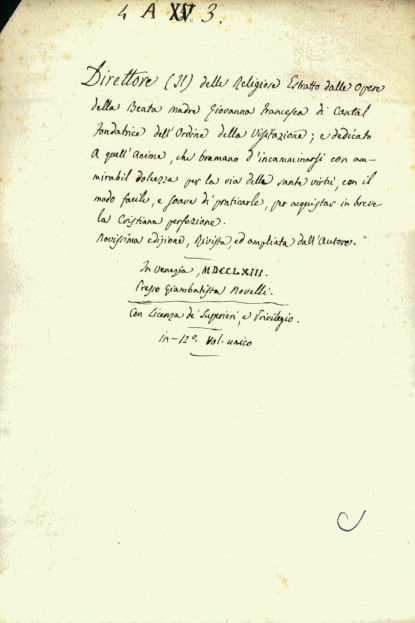 4 A XV 3.
Direttore (Il) delle Religiose Estratto dalle Opere
della Beata madre Giovanna Francesca di Cantal
fondatrice dell'Ordine della Visitazione; e dedicato
A quell'Anime, che bramano d'incamminarsi con am-
mirabil dolcezza per la via della sante virtù, con il
modo facile, e soave di praticarle, per acquistar in breve
la Cristiana perfezione.
Novissima edizione, Rivista, ed ampliata dall'Autore.
In Venezia, MDCCLXIII.
Presso Giambatista Novelli.
Con Licenza de' Superiori, e Privilegio.
in-12º. Vol. unico